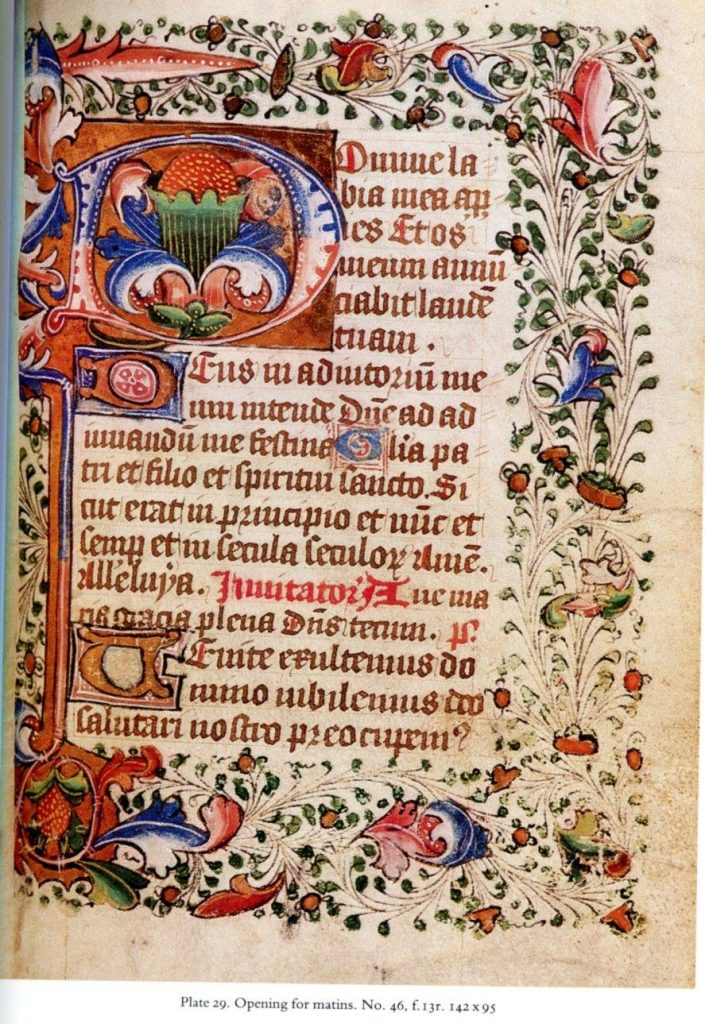 DOmine la
bia mea ap
ies Et os
meum annū
ciabit laudē
tuam .
DEus in adiutoriū me
um intende Dn̄e ad ad
iuuandū me festina Glia pa
tri et filio et spiritui sancto. Si
cut erat in principio et nūc et
semp et in secula seculoꝝ Amē.
Alleluya. Inuitator Aue ma
ria gracia plena Dn̄s tecum. ps.
VEnite exultemus do
mino iubilemus deo
salutari nostro preocupem
Plate 29. Opening for matins. No. 46, f.13r. 142 x 95